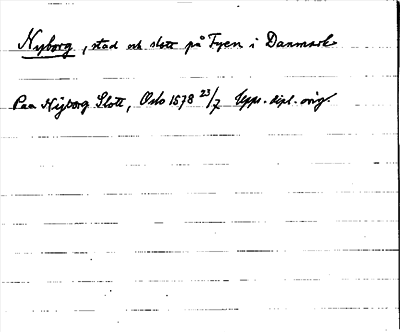 Nyborg, stad och slott på Fyen i Danmark
Paa Nyborg Slott, Oslo 1578 23/7 Lapp. dipl. orig.